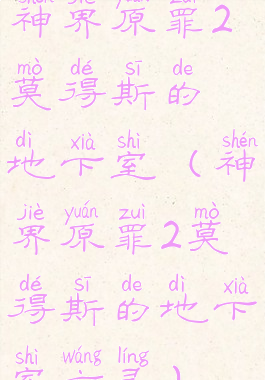 shén jiè yuán zuì
神 界 原 罪 2
mò dé sī de
莫 得 斯 的
dì xià shì shén
地 下 室 （ 神
jiè yuán zuì mò
界 原 罪 2 莫
dé sī de dì xià
得 斯 的 地 下
shì wáng líng
室 ）